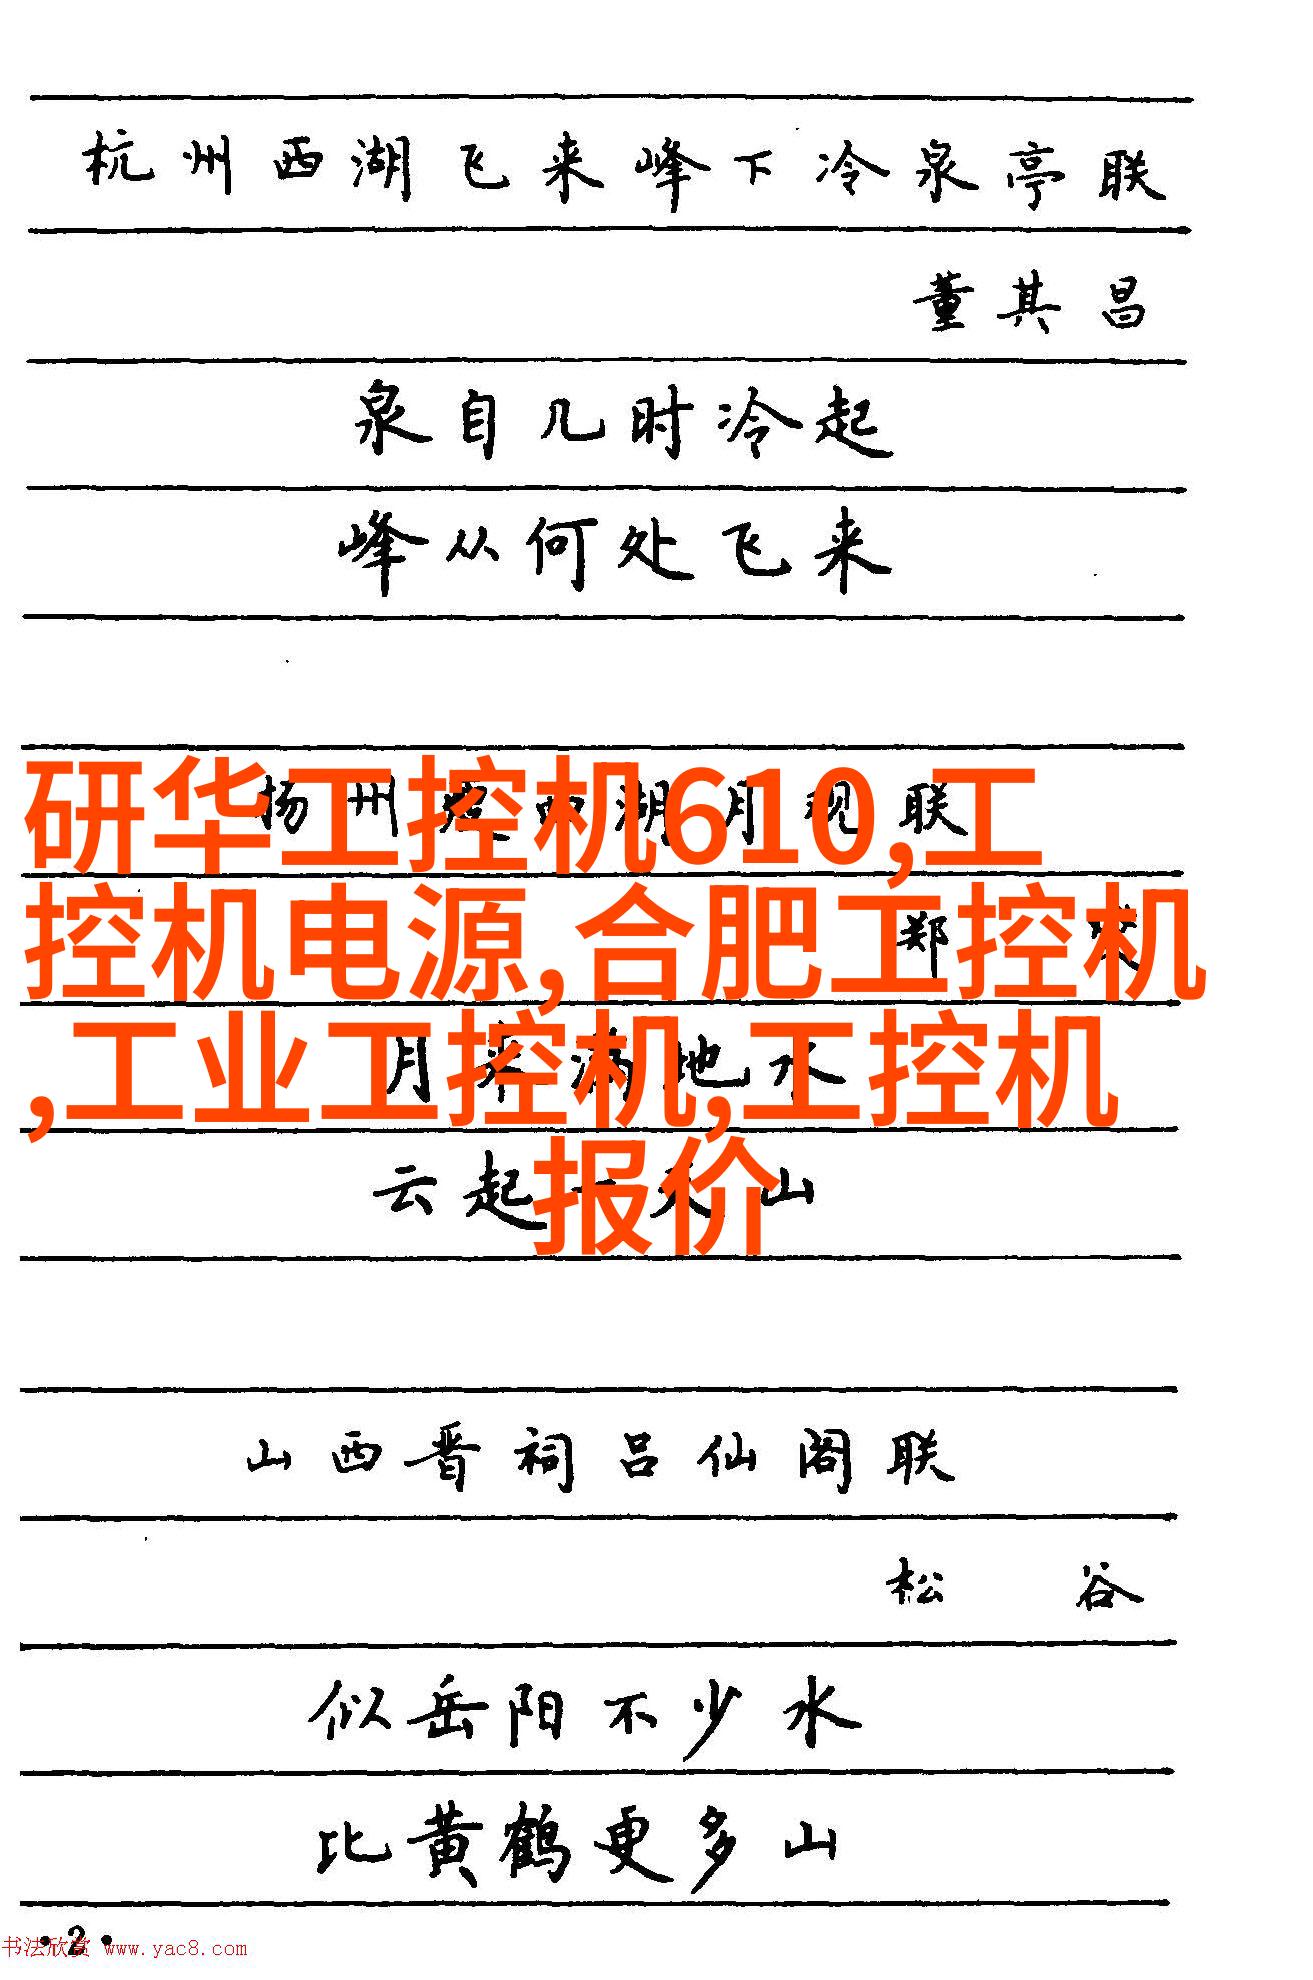 杭州西湖飞来峰下冷泉亭联
董其昌
泉自几时冷起
峰从何处飞来
扬州瘦西湖月观联
研华工控机610,工
郑
控机电源,合肥工控机
月来满地水
,工业工控机,工控机
云起一天山
报价
山西晋祠吕仙阁联
松谷
似岳阳不少水
比黄鹤更多山
·2·
书法欣赏 www.yac8.com